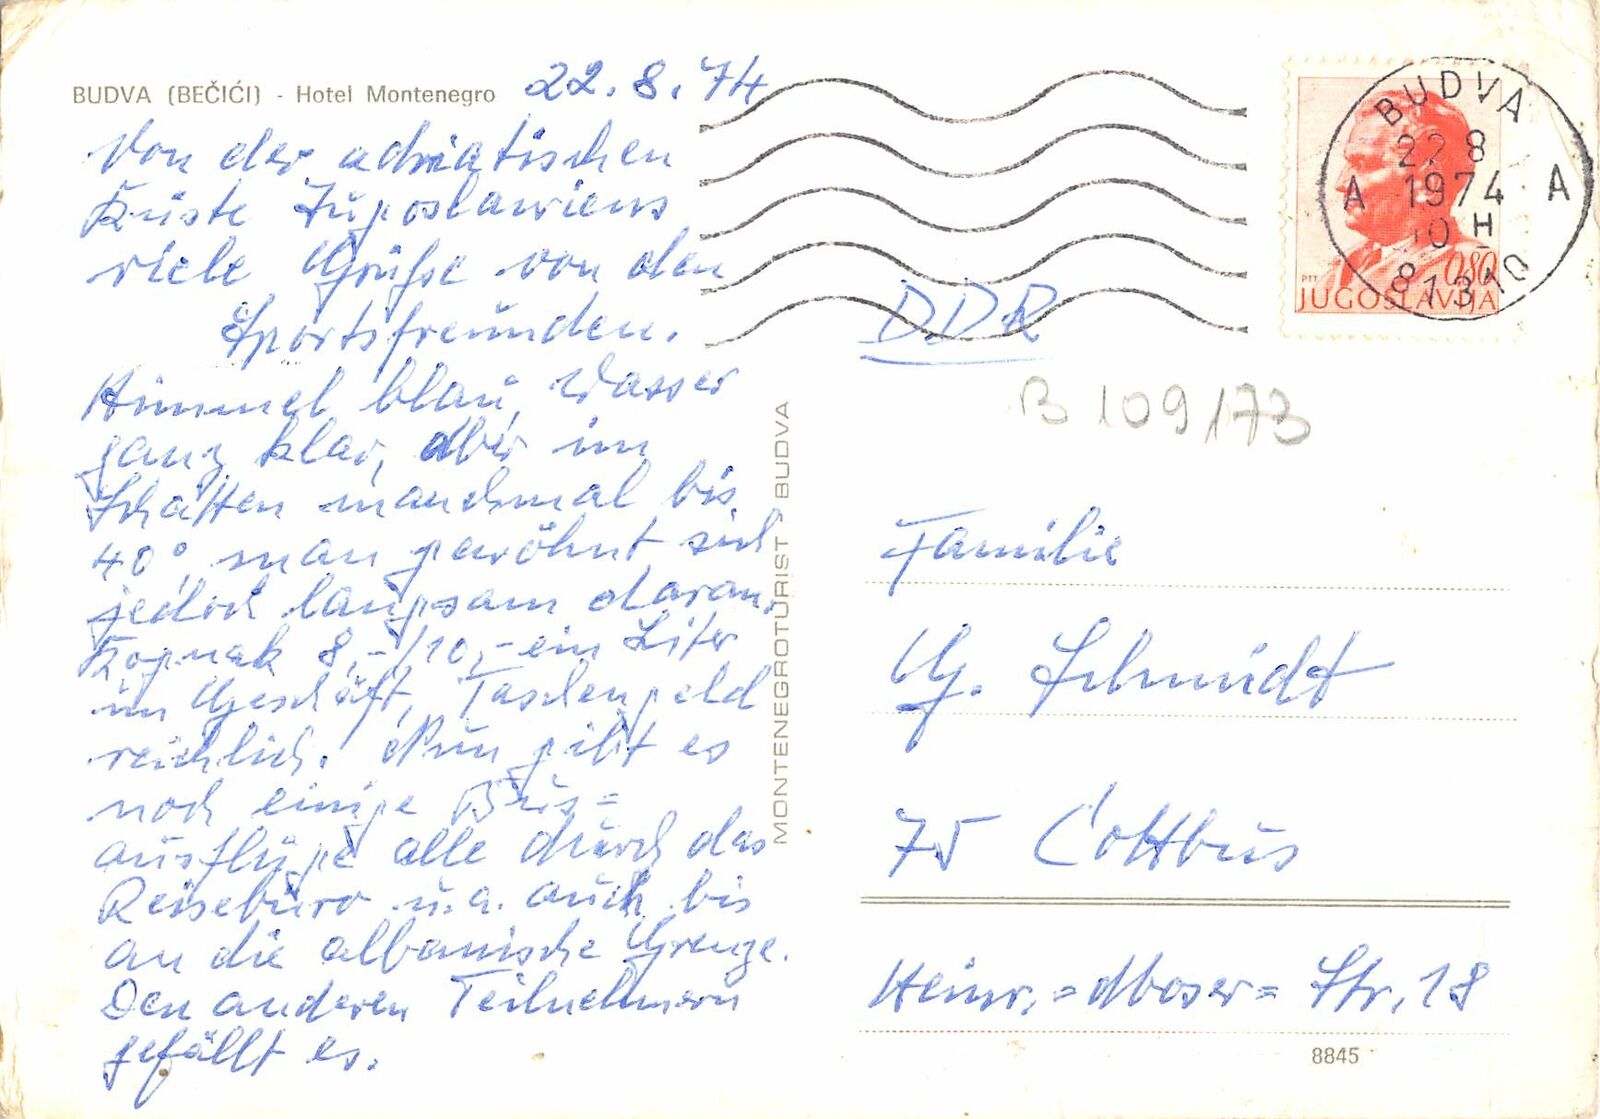 BUDVA (BEČIĆI) - Hotel Montenegro
22.8.74
Von der adriatischen
Küste Jugoslawiens
viele Grüße von den
Sportsfreunden.
Himmel blau, Wasser
ganz klar, aber im
Schatten manchmal bis
40° man gewöhnt sich
jedoch langsam daran.
Kognak 8,-/10,- ein Liter
im Geschäft, Taschengeld
reichlich. Nun gibt es
noch einige Bus=
ausflüge alle durch das
Reisebüro u.a. auch bis
an die albanische Grenze.
Den anderen Teilnehmern
gefällt es.
MONTENEGROTURIST BUDVA
BUDVA
22 8
1974
10 H
A A
81310
PTT
0.80
JUGOSLAVIJA
DDR
B 109/73
Familie
G. Schmidt
75 Cottbus
Heinr.= Moser= Str. 18
8845